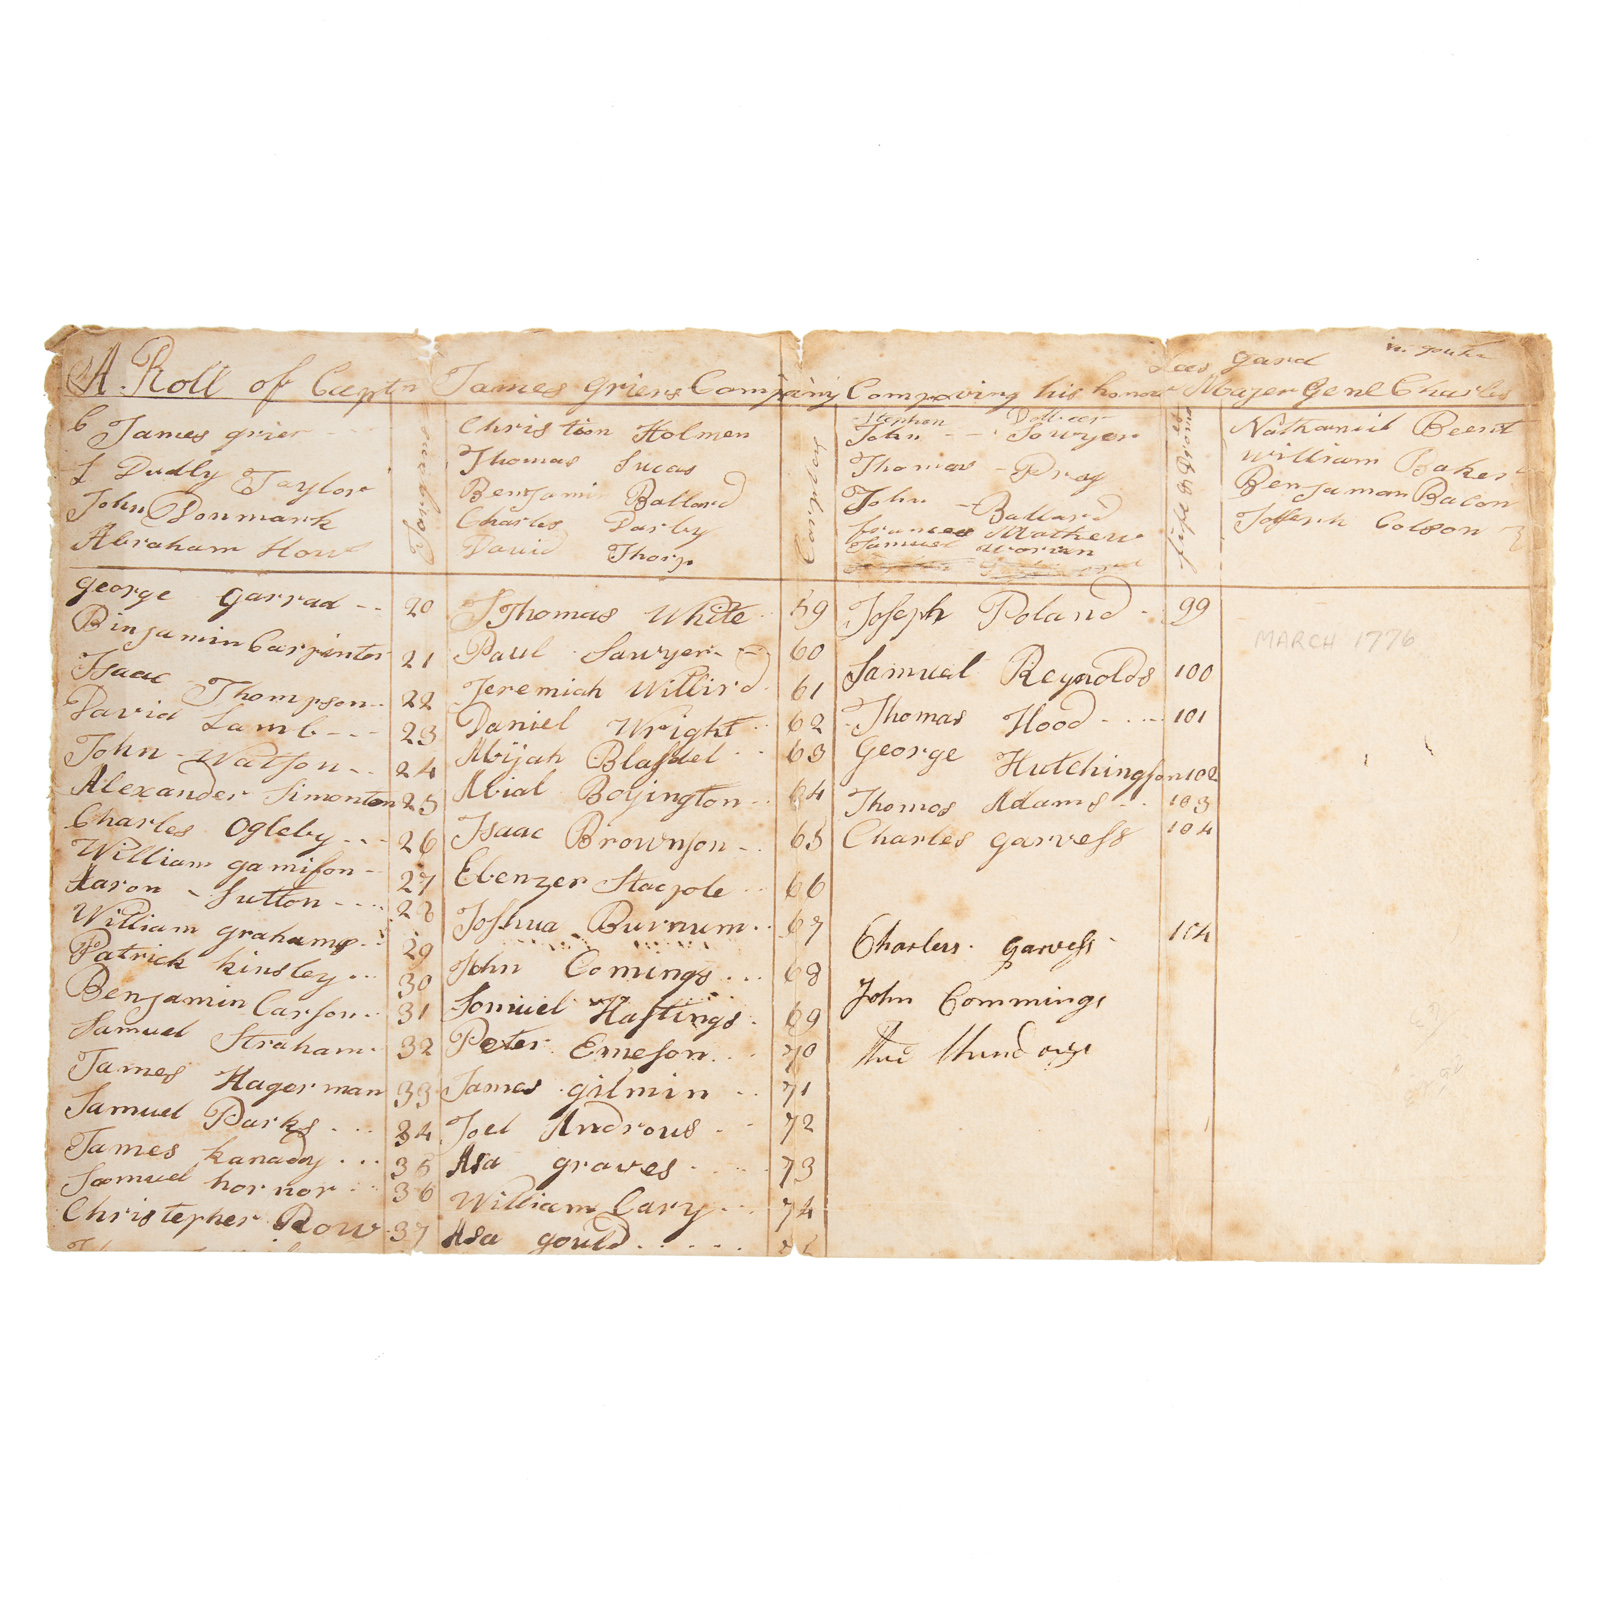 Lees gard
A. Roll of Captn James griers Company Composing his honour Majer Genl Charles
C James grier
L Dudly Taylor
John Donmark
Abraham How
Christion Holmen
Thomas Lucas
Benjamin Ballard
Charles Darby
David Thorp
Stephen
John Sowyer
Thomas Pray
John Ballard
frances Mathew
Samuel
fife & Drums
Nathaniel
William Baker
Benjaman Bacon
Joseph Colson
george garrad 20
Binjamin Carpintor 21
Isaac Thompson 22
David Lamb 23
John Watson 24
Alexander Simonton 25
Charles Ogleby 26
William gamison 27
Aaron Sutton 28
William grahams 29
Patrick kinsley 30
Benjamin Carson 31
Samuel Straham 32
James Hagerman 33
Samuel Parks 34
James kanady 35
Samuel hornor 36
Christepher Row 37
Thomas White 59
Paul Sawyer 60
Jeremiah Willird 61
Daniel Wright 62
Abijah Blasdel 63
Abial Boyington 64
Isaac Brownson 65
Ebenzer Stacpole 66
Joshua Burnum 67
John Comings 68
Somuel Hastings 69
Peter Emeson 70
James gilmin 71
Joel Androus 72
Asa graves 73
William Cary 74
Asa gould
Joseph Poland 99
Samuel Reynolds 100
Thomas Hood 101
George Hutchingson 102
Thomas Adams 103
Charles garvess 104
Charles garvess 104
John Commings
MARCH 1776